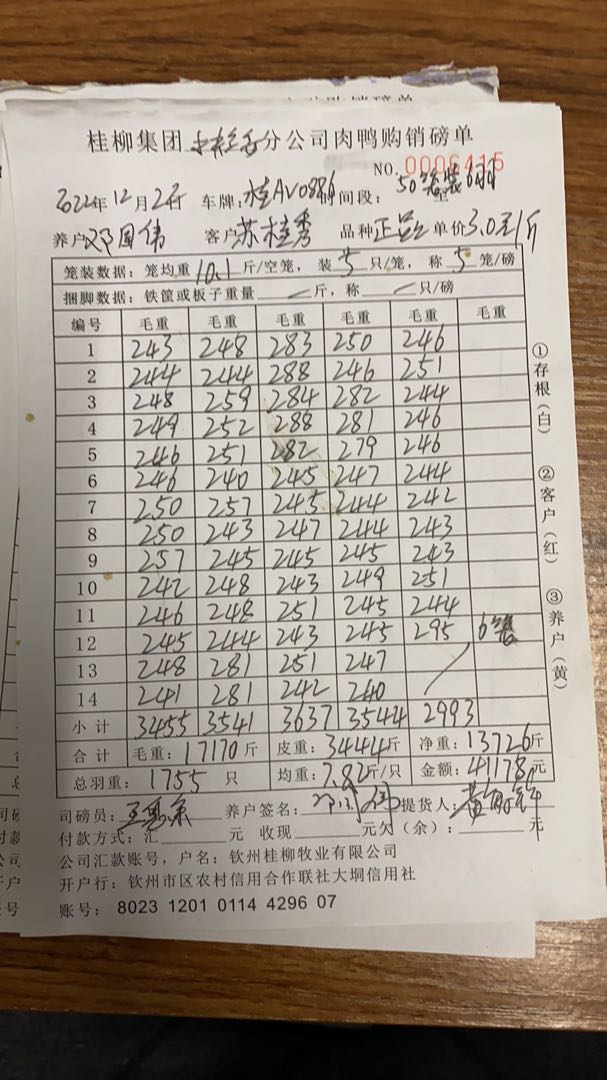 桂柳集团 分公司肉鸭购销磅单
NO. 0006415
2022年12月22日 车牌：桂AV0886 时间段：50笼装6只 至
养户 邓国伟 客户 苏桂秀 品种 正品 单价 3.0元/斤
笼装数据：笼均重 10.1 斤/空笼，装 5 只/笼，称 5 笼/磅
捆脚数据：铁筐或板子重量 / 斤，称 / 只/磅
编号 毛重 毛重 毛重 毛重 毛重 毛重
1 243 248 283 250 246
2 244 244 288 246 251
3 248 259 284 282 244
4 249 252 288 281 246
5 246 251 282 279 246
6 246 240 245 247 244
7 250 257 245 244 242
8 250 243 247 244 243
9 257 245 245 245 243
10 242 248 243 249 251
11 246 248 251 245 244
12 245 244 243 245 295 6笼
13 248 281 251 247 /
14 241 281 242 240
小计 3455 3541 3637 3544 2993
合计 毛重：17170斤 皮重：3444斤 净重：13726斤
总羽重：1755 只 均重：7.82斤/只 金额：41178元
司磅员： 养户签名：邓国伟 提货人：
付款方式：汇 元 收现 元欠（余）： 元
公司汇款账号，户名：钦州桂柳牧业有限公司
开户行：钦州市区农村信用合作联社大垌信用社
账号：8023 1201 0114 4296 07
①存根（白）
②客户（红）
③养户（黄）